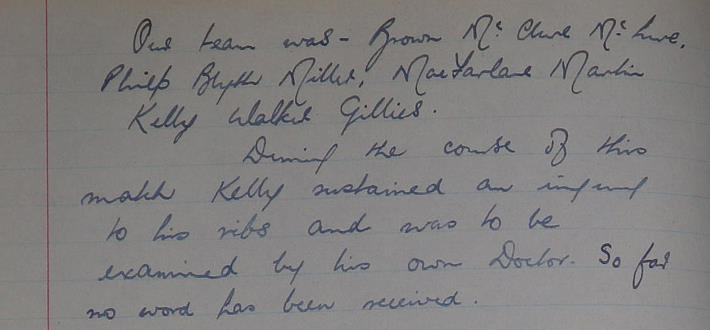 Our team was - Brown McClure McLure,
Philp Blyth Miller, MacFarlane Martin
Kelly Walker Gillies.
During the course of this
match Kelly sustained an injury
to his ribs and was to be
examined by his own Doctor. So far
no word has been received.